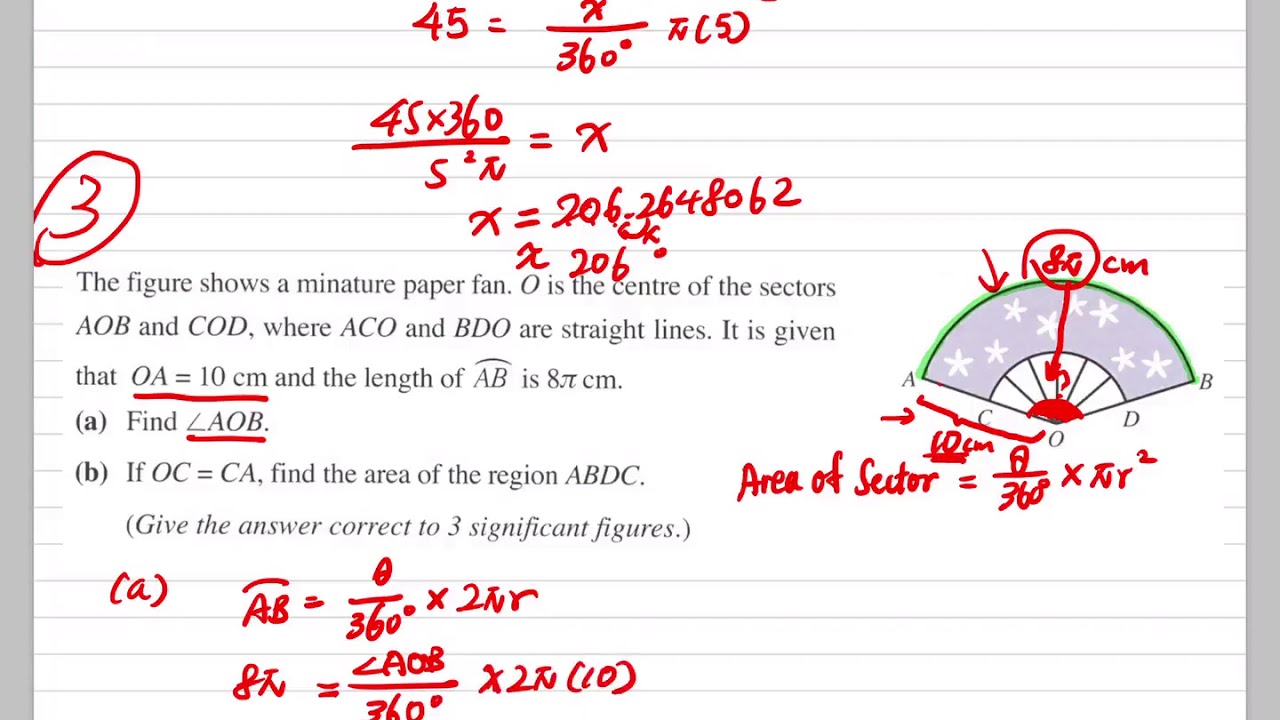 45 = x/360° π(5)
45×360/5²π = x
x = 206.2648062
≈ 206°
3
The figure shows a minature paper fan. O is the centre of the sectors
AOB and COD, where ACO and BDO are straight lines. It is given
that OA = 10 cm and the length of A͡B is 8π cm.
(a) Find ∠AOB.
(b) If OC = CA, find the area of the region ABDC.
(Give the answer correct to 3 significant figures.)
8π cm
A
B
C
D
O
?
10cm
Area of Sector = θ/360° × πr²
(a) A͡B = θ/360° × 2πr
8π = ∠AOB/360° × 2π(10)